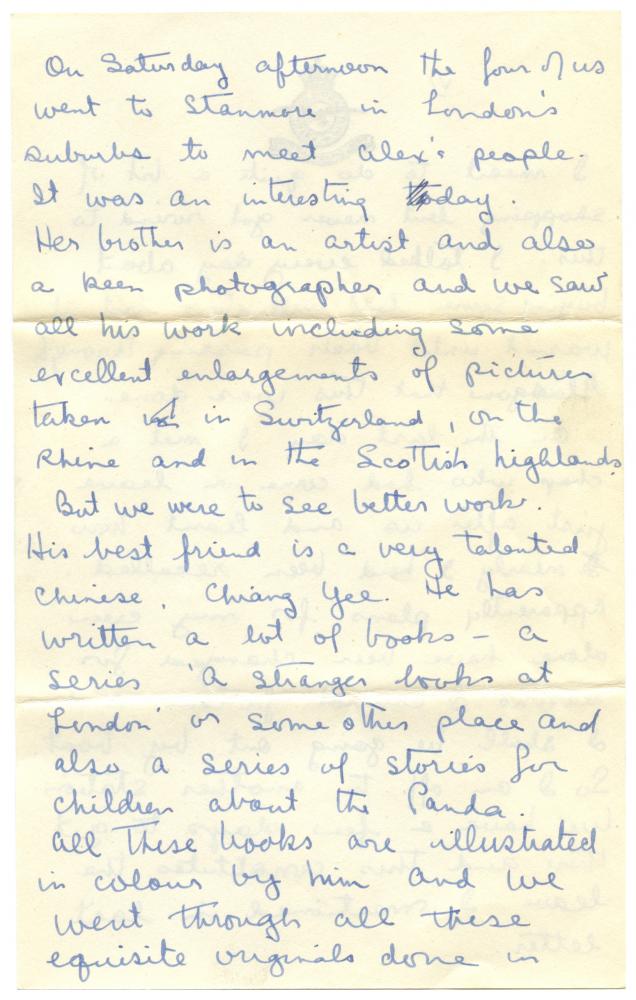 On Saturday afternoon the four of us
went to Stanmore in London's
suburbs to meet Alex's people.
It was an interesting day.
Her brother is an artist and also
a keen photographer and we saw
all his work including some
excellent enlargements of pictures
taken in Switzerland, on the
Rhine and in the Scottish highlands.
But we were to see better work.
His best friend is a very talented
Chinese, Chiang Yee. He has
written a lot of books – a
series 'A stranger looks at
London' or some other place and
also a series of stories for
children about the Panda.
All these books are illustrated
in colour by him and we
went through all these
equisite originals done in